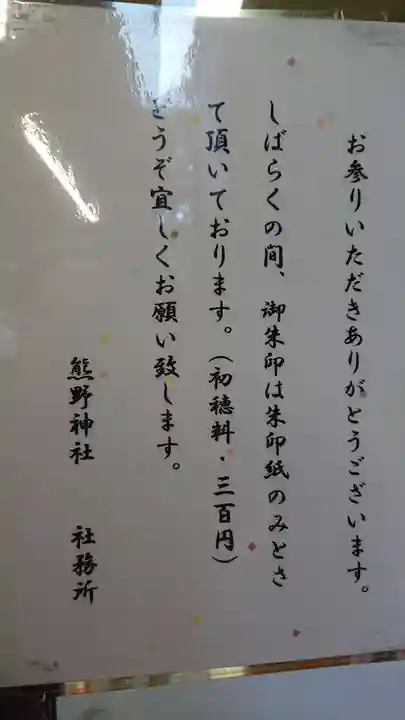 お参りいただきありがとうございます。
しばらくの間、御朱印は朱印紙のみとさ
て頂いております。（初穂料・三百円）
どうぞ宜しくお願い致します。
熊野神社　社務所